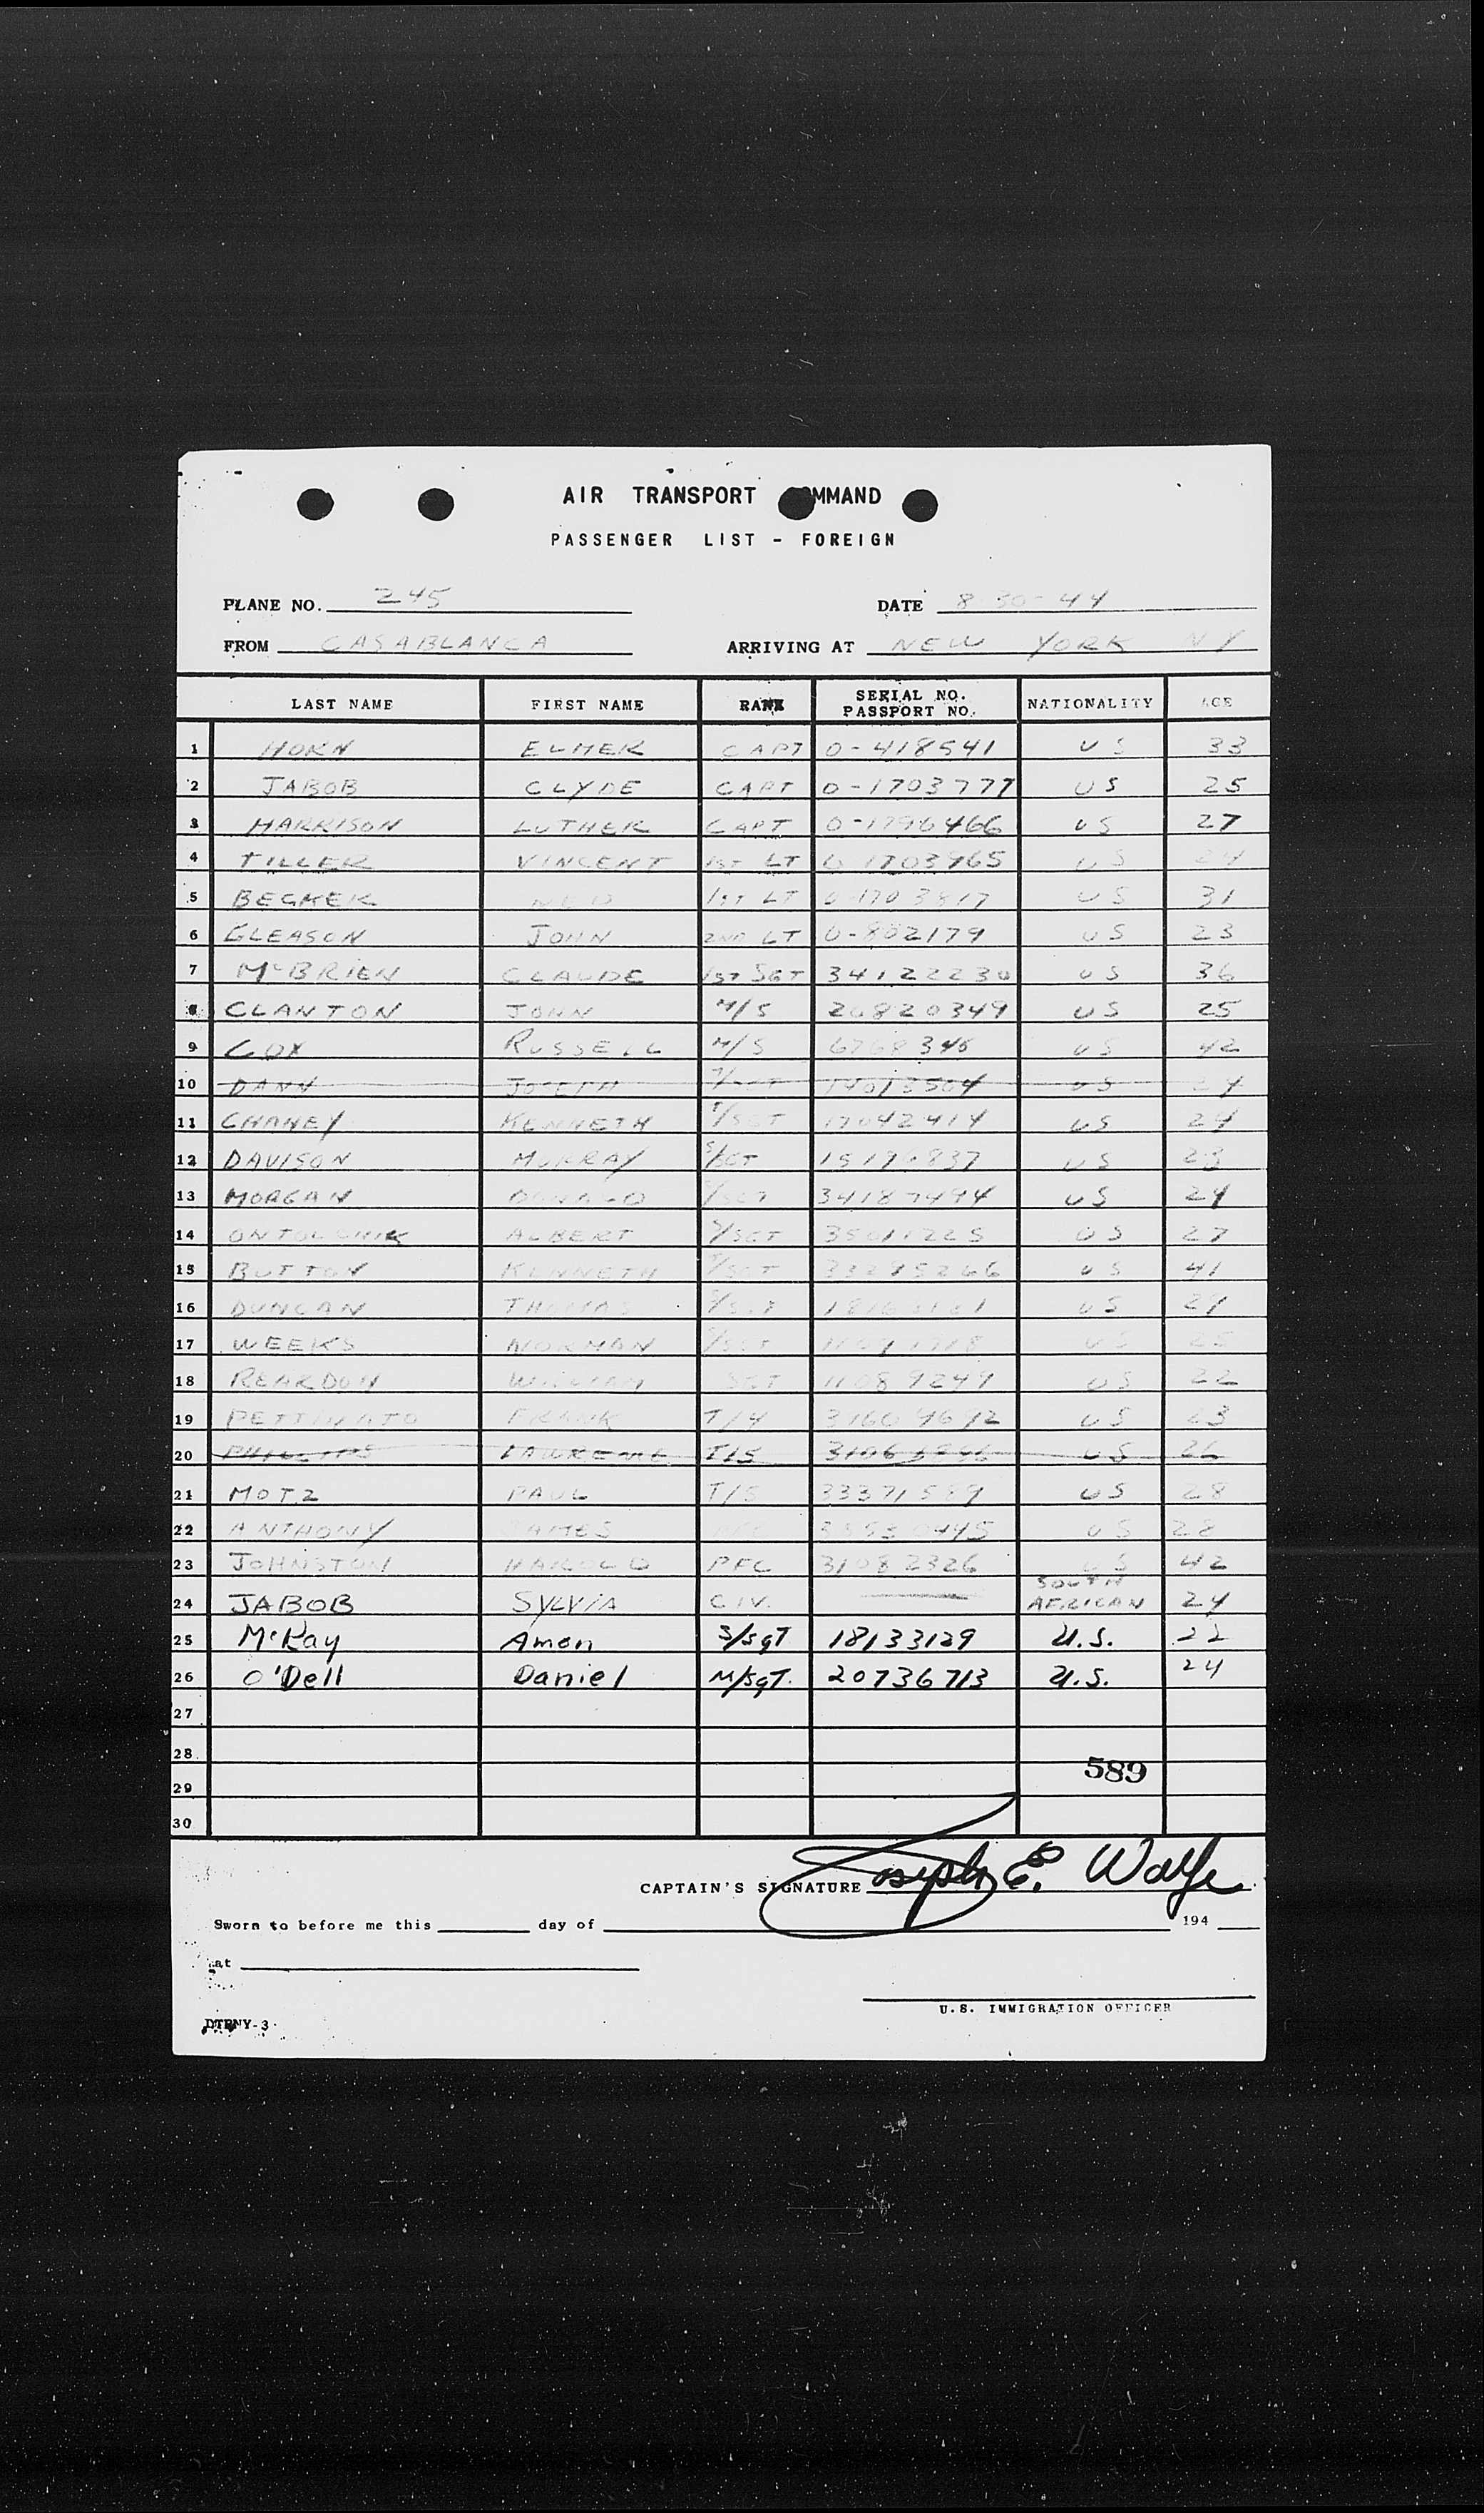 AIR TRANSPORT COMMAND
PASSENGER LIST - FOREIGN
PLANE NO. 245 DATE 8-30-44
FROM CASABLANCA ARRIVING AT NEW YORK NY
LAST NAME FIRST NAME RANK SERIAL NO. PASSPORT NO. NATIONALITY AGE
1 HORN ELMER CAPT O-418541 US 33
2 JABOB CLYDE CAPT O-1703777 US 25
3 HARRISON LUTHER CAPT O-1796466 US 27
4 TILLER VINCENT 1ST LT O-1703965 US 24
5 BECKER NED 1ST LT O-1703817 US 31
6 GLEASON JOHN 2ND LT O-802179 US 23
7 McBRIEN CLAUDE 1ST SGT 34122230 US 36
8 CLANTON JOHN M/S 20820349 US 25
9 COX RUSSELL M/S 6768345 US 42
10 DANN JOSEPH 14013504 US
11 CHANEY KENNETH T/SGT 17042414 US 24
12 DAVISON MURRAY S/SGT 15196837 US 23
13 MORGAN DONALD S/SGT 34187494 US 24
14 ALBERT S/SGT 35011225 US 27
15 BUTTON KENNETH S/SGT 33285266 US 41
16 DUNCAN THOMAS S/SGT US 29
17 WEEKS NORMAN S/SGT US 25
18 REARDON WILLIAM SGT 11089249 US 22
19 PETTINATO FRANK T/4 31604612 US 23
20 PHILLIPS LAWRENCE T/5 US 26
21 MOTZ PAUL T/5 33371589 US 28
22 ANTHONY JAMES PFC 33530445 US 28
23 JOHNSTON HAROLD PFC 31082326 US 42
24 JABOB SYLVIA CIV. SOUTH AFRICAN 24
25 McKay Amon S/SgT 18133129 U.S. 22
26 O'Dell Daniel M/SgT. 20736713 U.S. 24
27
28
589
29
30
CAPTAIN'S SIGNATURE Joseph E. Wolfe
Sworn to before me this day of 194
at
U.S. IMMIGRATION OFFICER
DTPNY-3